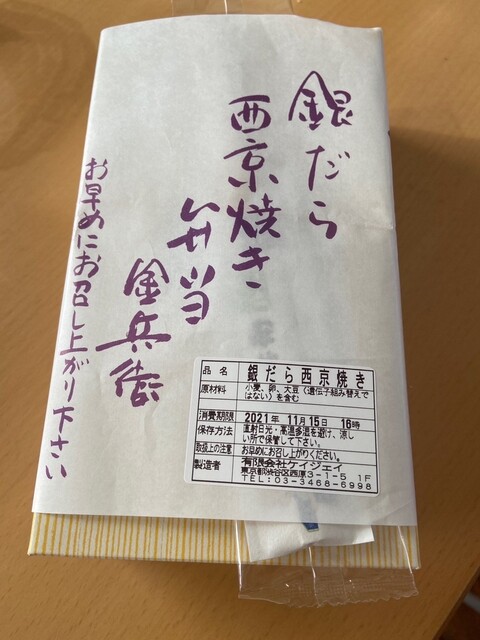 銀だら
西京焼き
弁当
金兵衛
お早めにお召し上がり下さい
品名 銀だら西京焼き
原材料 小麦、卵、大豆(遺伝子組み替えで
はない)を含む
消費期限 2021年 11月15日 16時
保存方法 直射日光・高温多湿を避け、涼し
い所で保管して下さい。
取扱上の注意 お早めにお召し上がりください。
製造者 有限会社ケイジェイ
東京都渋谷区西原3-1-5 1F
TEL:03-3468-6998